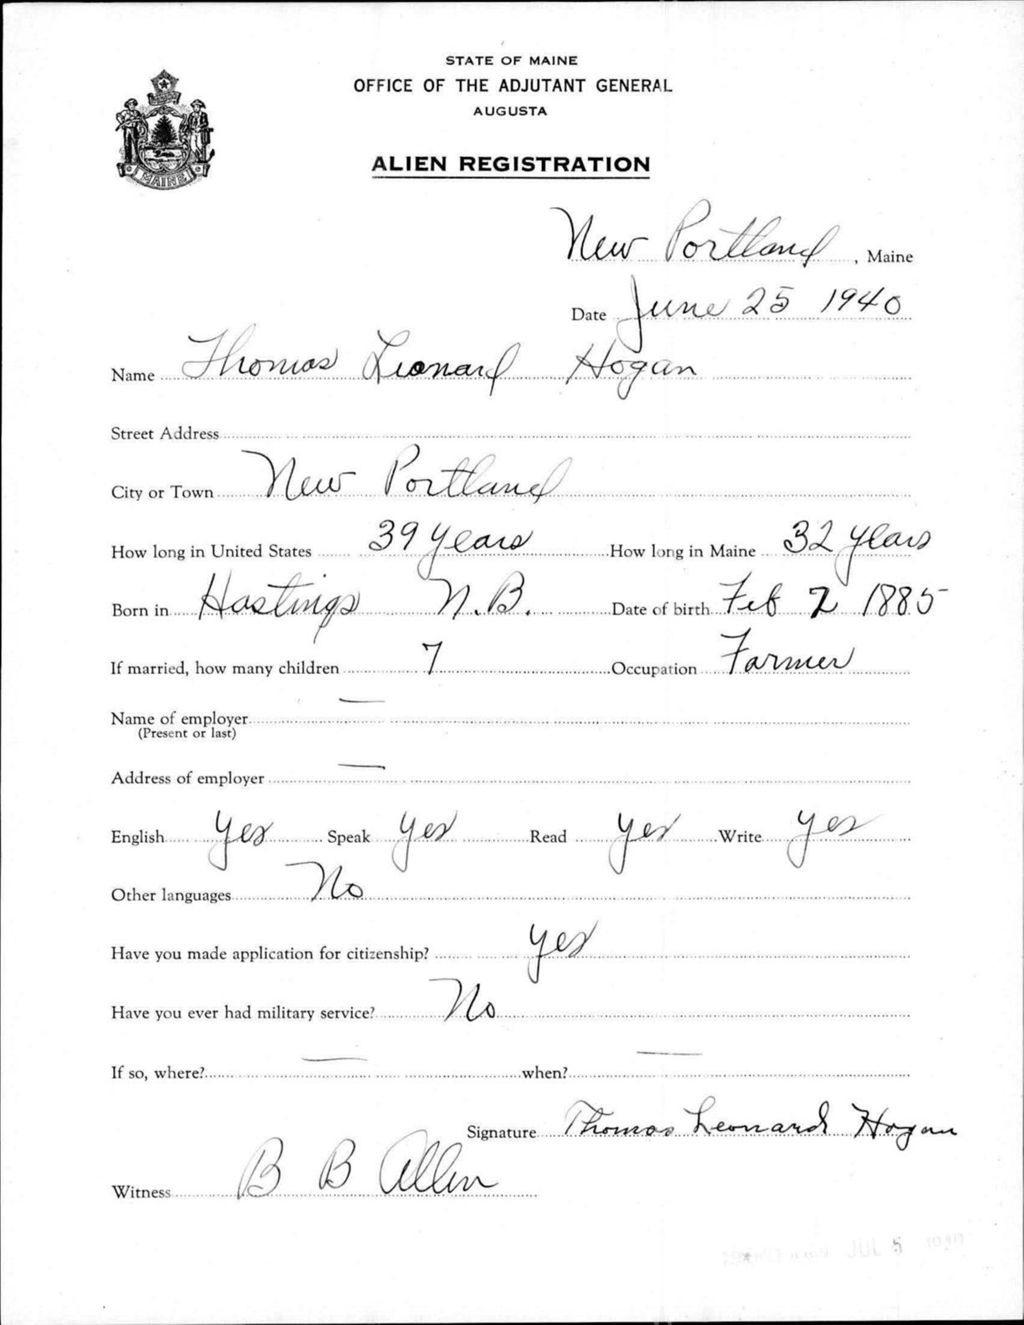 STATE OF MAINE
OFFICE OF THE ADJUTANT GENERAL
AUGUSTA
ALIEN REGISTRATION
MAINE
New Portland, Maine
Date June 25 1940
Name Thomas Leonard Hogan
Street Address
City or Town New Portland
How long in United States 39 years How long in Maine 32 years
Born in Hastings N.B. Date of birth Feb 2 1885
If married, how many children 7 Occupation Farmer
Name of employer —
(Present or last)
Address of employer —
English yes Speak yes Read yes Write yes
Other languages No
Have you made application for citizenship? yes
Have you ever had military service? No
If so, where? — when? —
Signature Thomas Leonard Hogan
Witness B B Allen
JUL 5